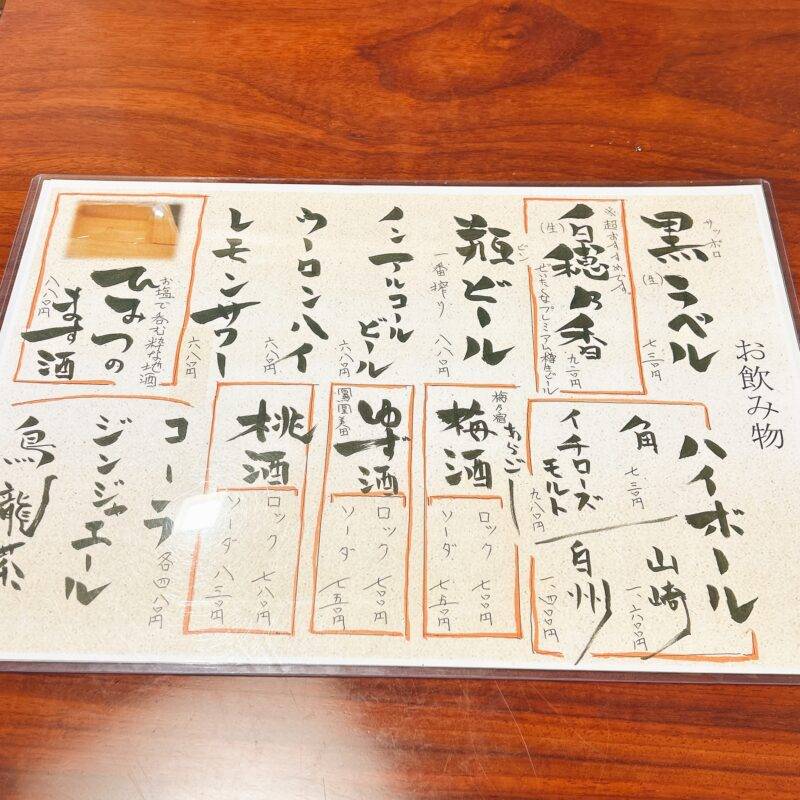 お飲み物
サッポロ
黒ラベル
(生)
七三〇円
※超おすすめです。
白穂乃香
(生)
九二〇円
ぜいたくなプレミアム樽生ビール
ビン
瓶ビール
一番搾り
八八〇円
ノンアルコール
ビール
六八〇円
ウーロンハイ
六八〇円
レモンサワー
六八〇円
お塩で呑む粋な地酒
ひみつの
ます酒
八八〇円
ハイボール
角
七三〇円
イチローズ
モルト
九八〇円
山崎
一、六〇〇円
白州
一、四〇〇円
梅乃宿
あらごし
梅酒
ロック 七〇〇円
ソーダ 七五〇円
鳳凰美田
ゆず酒
ロック 七〇〇円
ソーダ 七五〇円
桃酒
ロック 七八〇円
ソーダ 八三〇円
コーラ
ジンジャエール
烏龍茶
各四八〇円